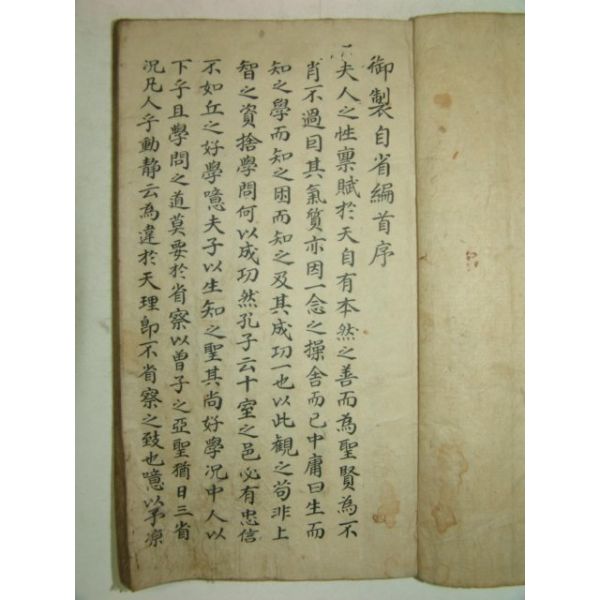 御製自省編首序
夫人之性禀賦於天自有本然之善而為聖賢為不
肖不過曰其氣質亦因一念之操舍而已中庸曰生而
知之學而知之困而知之及其成功一也以此觀之苟非上
智之資捨學問何以成功然孔子云十室之邑必有忠信
不如丘之好學噫夫子以生知之聖其尚好學况中人以
下乎且學問之道莫要於省察以曾子之亞聖猶日三省
况凡人乎動靜云為違於天理卽不省察之致也噫以予凉